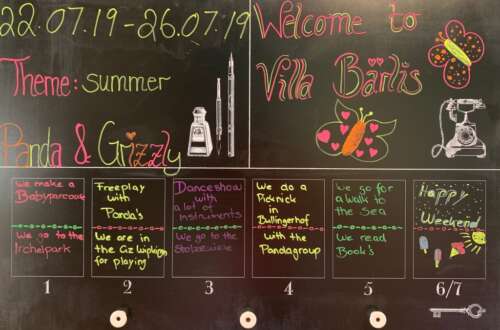 22.07.19-26.07.19
Theme: summer
Panda & Grizzly
Welcome to
Villa Bärlis
We make a
Babyparcour
We go to the
Irchelpark
1
Freeplay
with
Panda's
We are in
the Gz Wipkingen
for playing
2
Danceshow
with
a lot of
Instruments
We go to the
3
We do a
Picknick
in
Bullingerhof
with the
Pandagroup
4
We go for
a walk to
the Sea
We read
Book's
5
Happy
Weekend
6/7